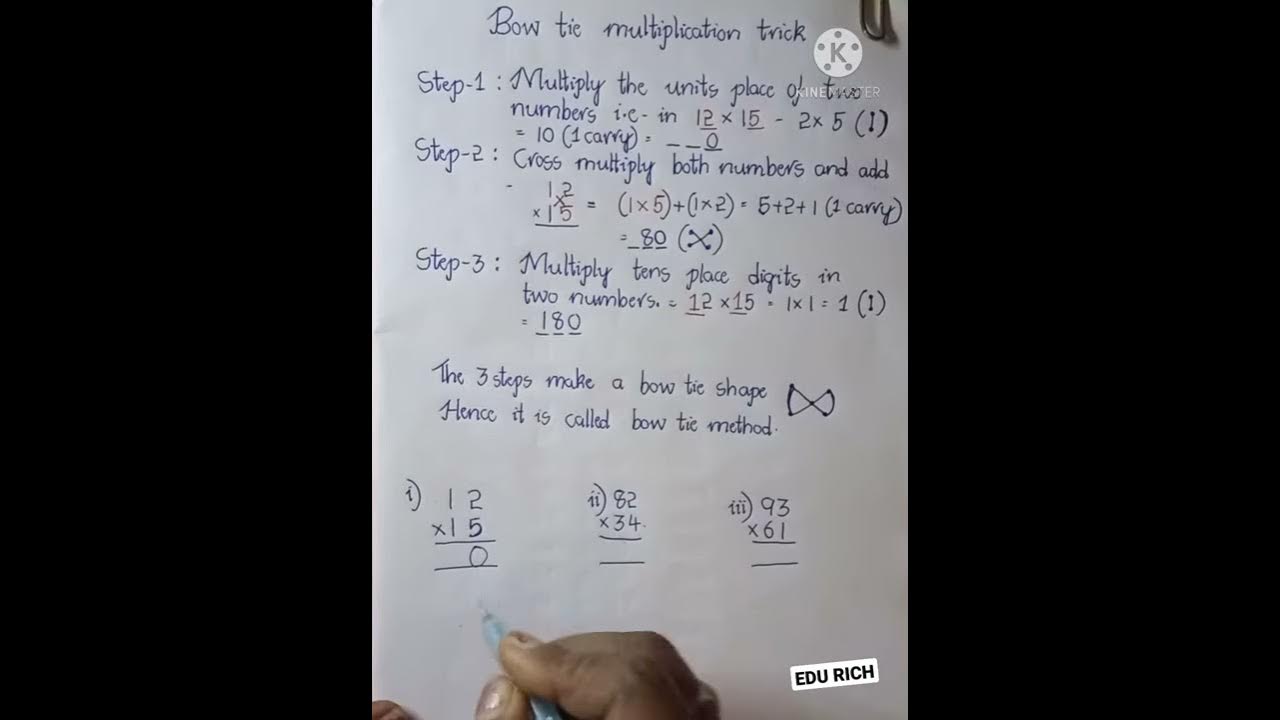 Bow tie multiplication trick
KINEMASTER
Step-1 : Multiply the units place of two
numbers i.e- in 12 × 15 - 2 × 5 (I)
= 10 (1 carry) = _ _ 0
Step-2 : Cross multiply both numbers and add
12
×15 = (1×5)+(1×2) = 5+2+1 (1 carry)
= _80 (⋈)
Step-3 : Multiply tens place digits in
two numbers. = 12 × 15 = 1×1 = 1 (I)
= 180
The 3 steps make a bow tie shape
Hence it is called bow tie method.
i) 12 ii) 82 iii) 93
×15 ×34 ×61
0
EDU RICH